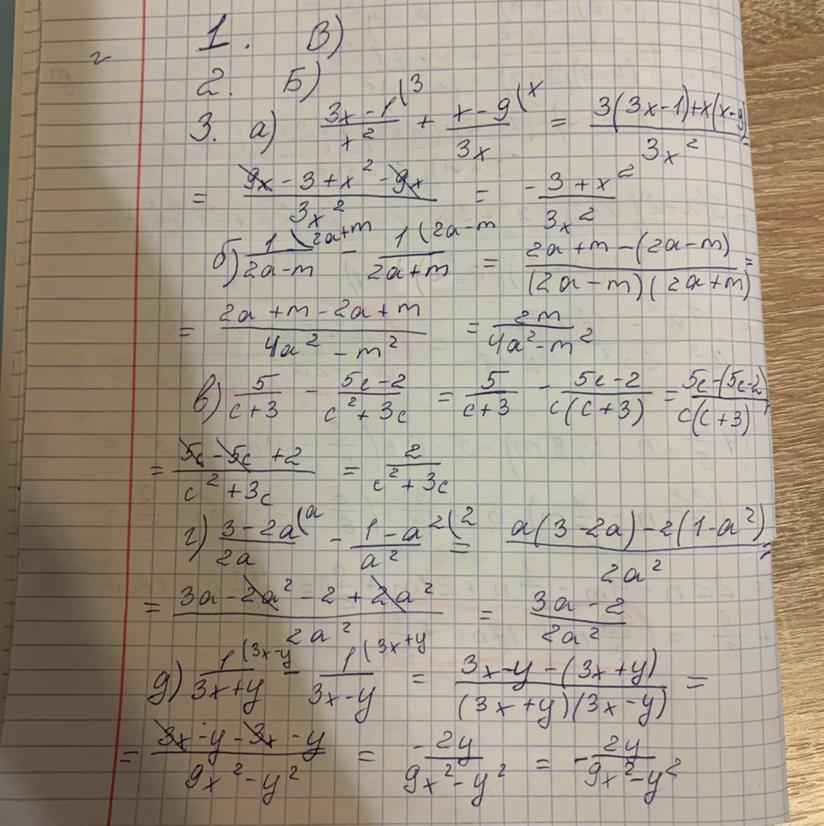 1. В)
2. Б)
3. а) (3x - 1)/x² (3 + (x - 9)/3x (x = (3(3x-1)+x(x-9))/3x² =
= (9x - 3 + x² - 9x)/3x² = (-3 + x²)/3x²
б) 1/(2a-m) (2a+m - 1/(2a+m) (2a-m = (2a + m - (2a - m))/((2a - m)(2a + m)) =
= (2a + m - 2a + m)/(4a² - m²) = 2m/(4a² - m²)
в) 5/(c+3) - (5c - 2)/(c² + 3c) = 5/(c+3) - (5c - 2)/(c(c+3)) = (5c-(5c-2))/(c(c+3))
= (5c - 5c + 2)/(c² + 3c) = 2/(c² + 3c)
г) (3 - 2a)/2a (a - (1 - a²)/a² (2 = (a(3 - 2a) - 2(1 - a²))/2a² =
= (3a - 2a² - 2 + 2a²)/2a² = (3a - 2)/2a²
д) 1/(3x+y) (3x-y - 1/(3x-y) (3x+y = (3x - y - (3x + y))/((3x + y)(3x - y)) =
= (3x - y - 3x - y)/(9x² - y²) = (-2y)/(9x² - y²) = - 2y/(9x² - y²)